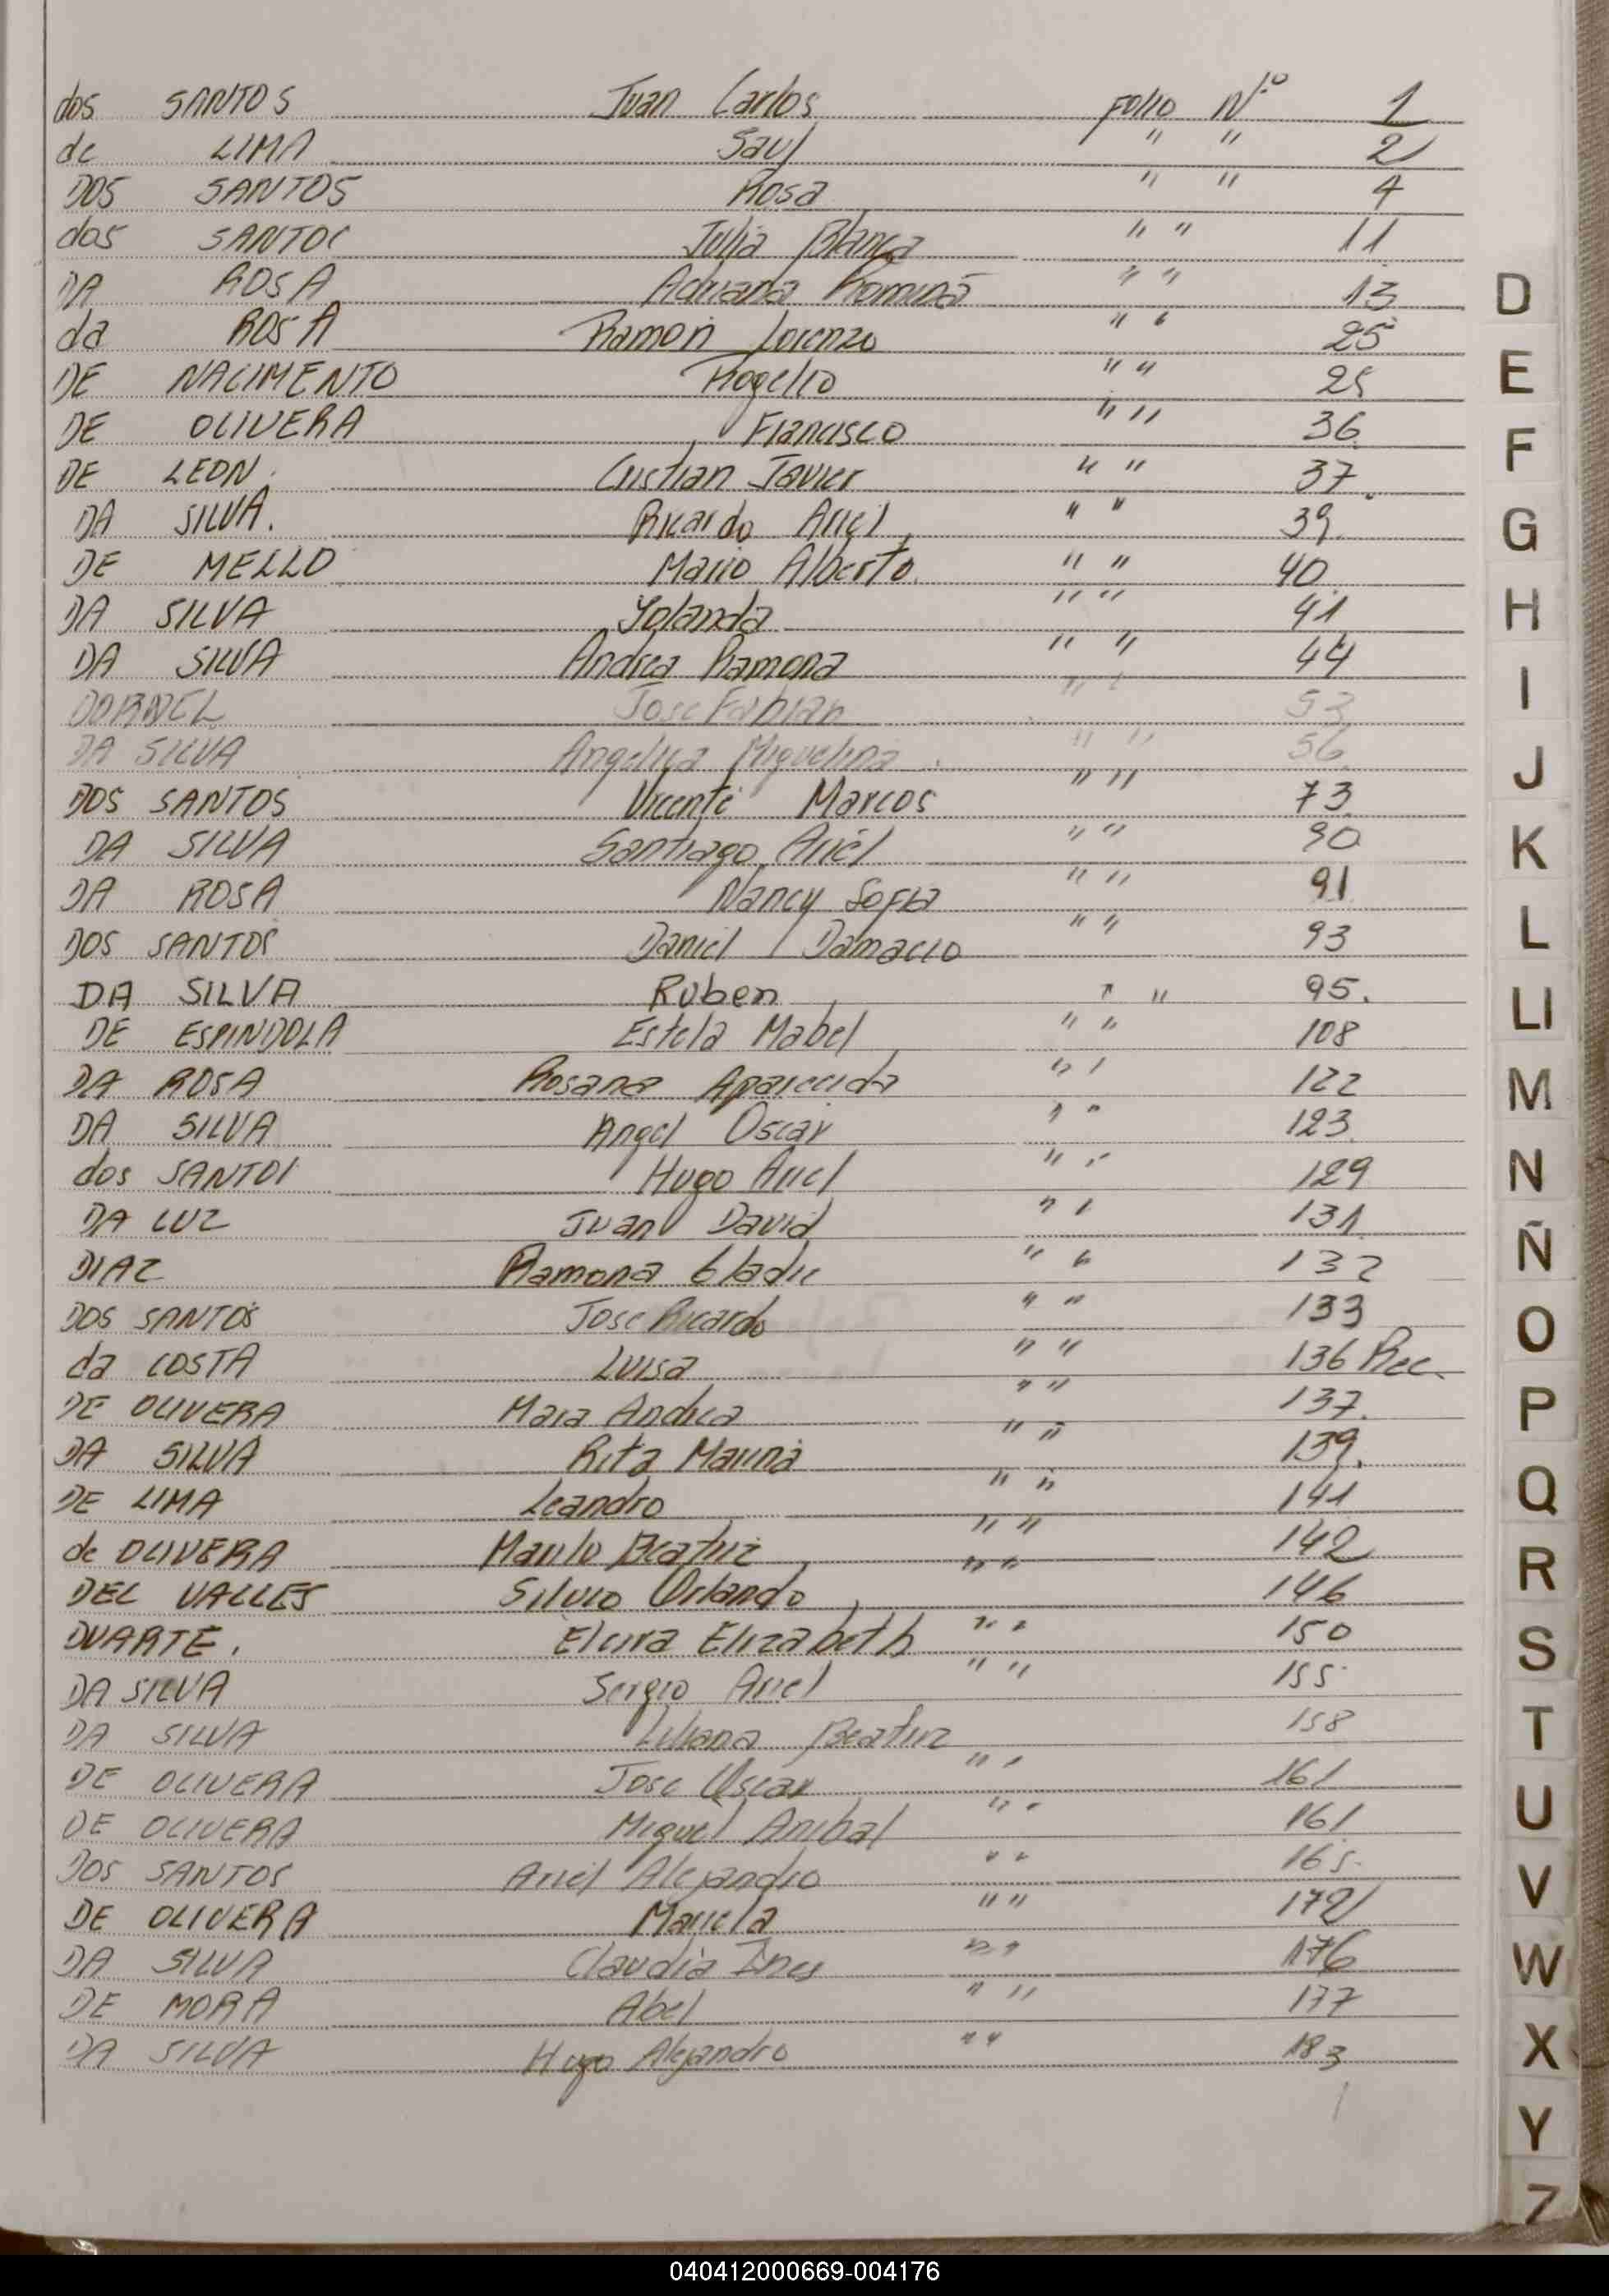 dos SANTOS Juan Carlos Folio N.º 1
de LIMA Saul " " 2
DOS SANTOS Rosa " " 4
dos SANTOS Julia Blanca " " 11
DA ROSA Adriana Romina " " 13
da ROSA Ramon Lorenzo " " 25
DE NACIMENTO Rogelio " " 25
DE OLIVERA Francisco " " 36
DE LEON. Cristian Javier " " 37.
DA SILVA. Ricardo Ariel " " 39.
DE MELLO Mario Alberto. " " 40.
DA SILVA Yolanda " " 41
DA SILVA Andrea Ramona " " 44
DORNEL Jose Fabian " " 53
DA SILVA Angelica Miguelina " " 56.
DOS SANTOS Vicente Marcos " " 73
DA SILVA Santiago Ariel " " 90
DA ROSA Nancy Sofia " " 91
DOS SANTOS Daniel Damacio " " 93
DA SILVA Ruben " " 95.
DE ESPINDOLA Estela Mabel " " 108
DA ROSA Rosana Aparecida " " 122
DA SILVA Angel Oscar " " 123
dos SANTOS Hugo Ariel " " 129
DA LUZ Juan David " " 131
DIAZ Ramona Gladis " " 132
DOS SANTOS Jose Ricardo " " 133
da COSTA Luisa " " 136 Rec.
DE OLIVERA Maria Andrea " " 137.
DA SILVA Rita Marina " " 139.
DE LIMA Leandro " " 141
de OLIVERA Beatriz " " 142
DEL VALLES Silvio Orlando " " 146
DUARTE. Elvira Elizabeth " " 150
DA SILVA Sergio Ariel " " 155
DA SILVA Liliana Beatriz 158
DE OLIVERA Jose Oscar " " 161
DE OLIVERA Miguel Anibal " " 161
DOS SANTOS Ariel Alejandro " " 165.
DE OLIVERA Mariela " " 172
DA SILVA Claudia Ines " " 176
DE MORA Abel " " 177
DA SILVA Hugo Alejandro " " 183
D
E
F
G
H
I
J
K
L
Ll
M
N
Ñ
O
P
Q
R
S
T
U
V
W
X
Y
Z
040412000669-004176